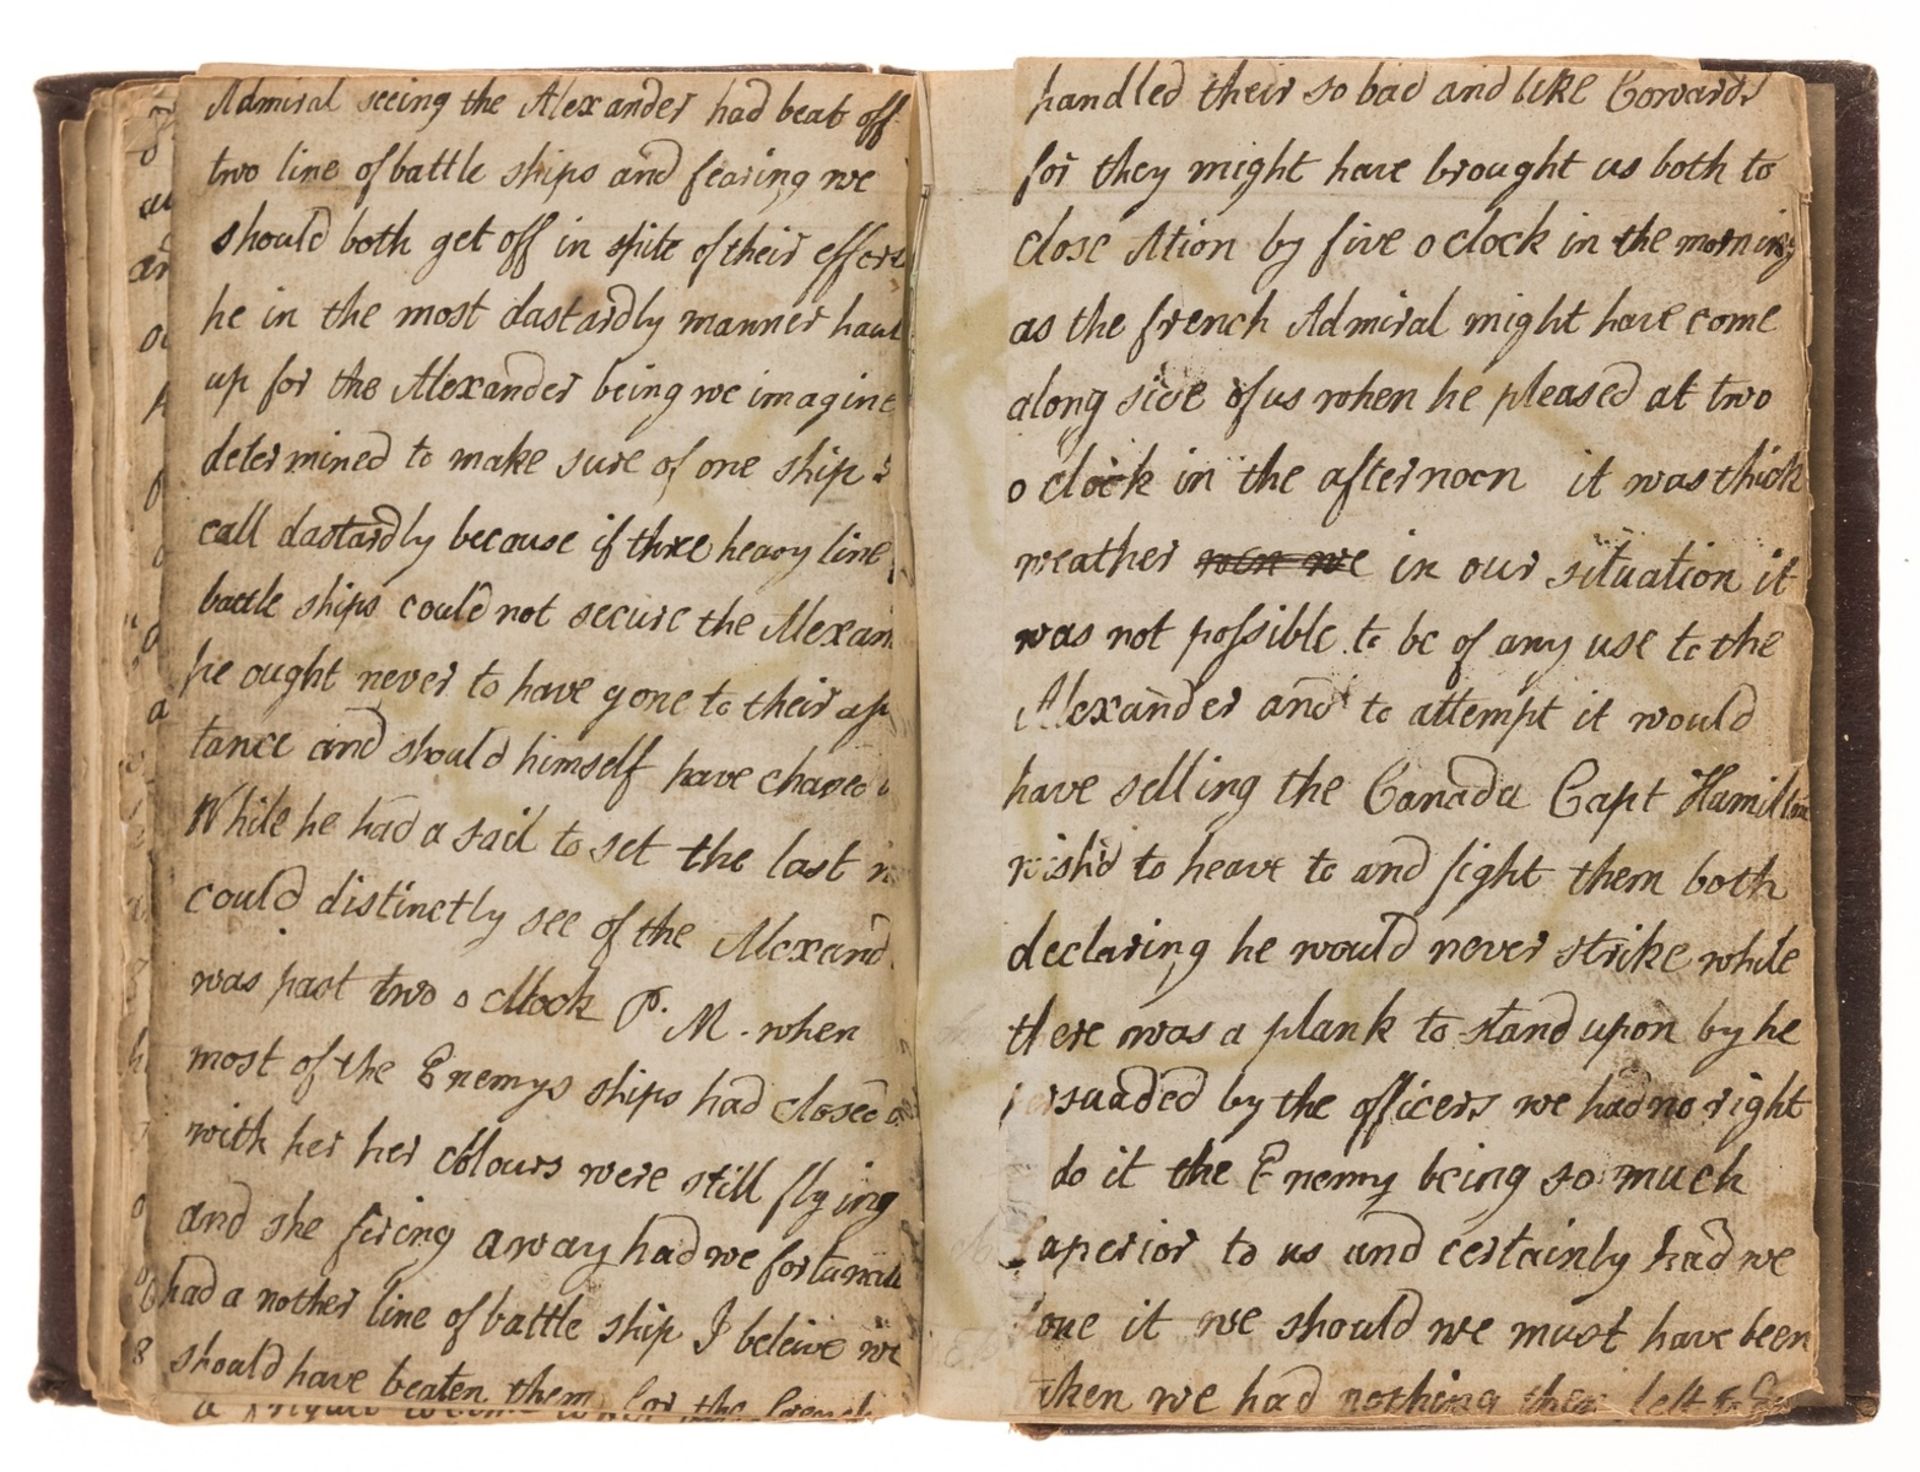 Admiral seeing the Alexander had beat off
two line of battle ships and fearing we
should both get off in spite of their effors
he in the most dastardly manner haul
up for the Alexander being we imagine
determined to make sure of one ship
call dastardly because if three heavy line
battle ships could not secure the Alexan
he ought never to have gone to their
tance and should himself have chased
While he had a sail to set the last
could distinctly see of the Alexand
was past two o cllock P. M. when
most of the Enemys ships had closed
with her her colours were still flying
and she firing away had we fortunate
had a nother line of battle ship I beleive we
should have beaten them for the french
handled their so bad and like Cowards
for they might have brought us both to
close Ation by five o clock in the morning
as the french Admiral might have come
along side of us when he pleased at two
o clock in the afternoon it was thick
weather wen we in our situation it
was not possible to be of any use to the
Alexander and to attempt it would
have selling the Canada Capt Hamilton
wish'd to heave to and fight them both
declaring he would never strike while
there was a plank to stand upon by he
ersuaded by the officers we had no right
do it the Enemy being so much
Superior to us and certainly had we
one it we should we must have been
aken we had nothing then left to